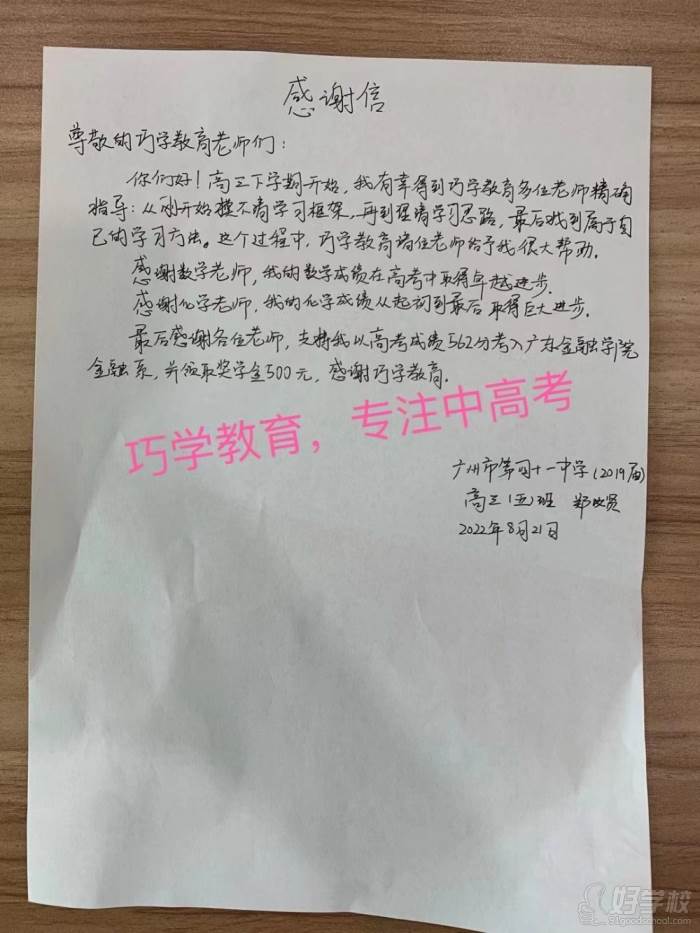 感谢信
尊敬的巧学教育老师们：
你们好！高三下学期开始，我有幸得到巧学教育各位老师精确
指导：从刚开始摸不清学习框架，再到理清学习思路，最后找到属于自
己的学习方法。这个过程中，巧学教育诸位老师给予我很大帮助。
感谢数学老师，我的数学成绩在高考中取得卓越进步.
感谢化学老师，我的化学成绩从起初到最后取得巨大进步.
最后感谢各位老师，支持我以高考成绩562分考入广东金融学院
金融系，并领取奖学金500元，感谢巧学教育.
巧学教育，专注中高考
广州市第四十一中学(2019届)
高三(五)班 郑贤
2022年8月21日
好学校
91goodschool.com